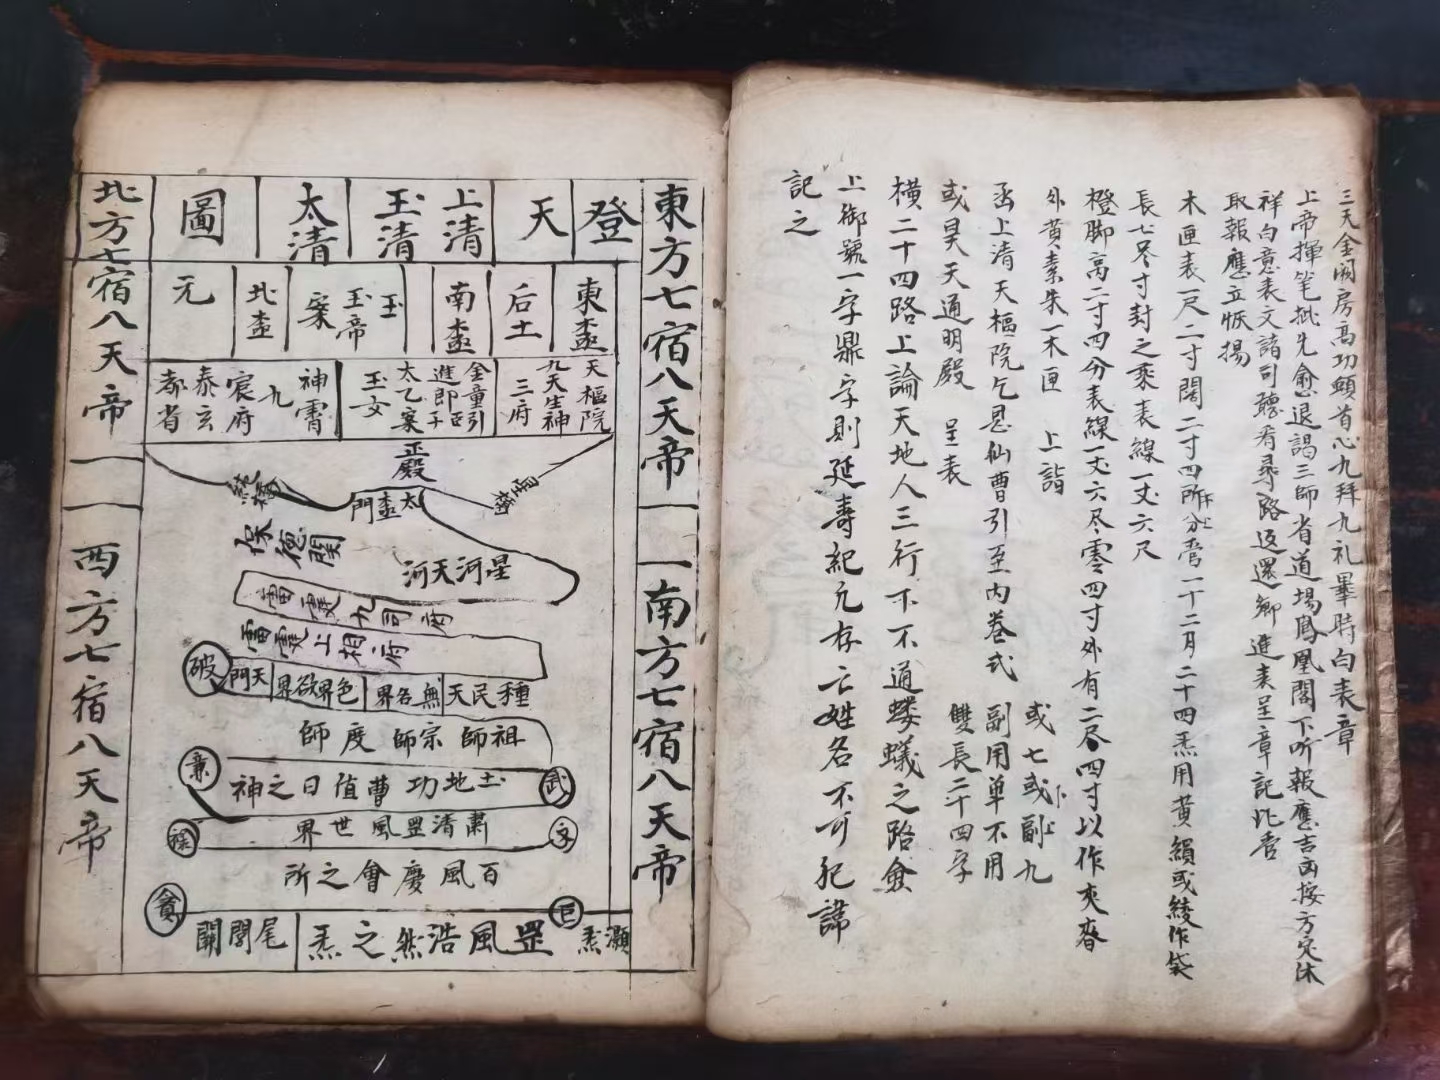 三天金闕房高功頓首心九拜九礼畢時白表章
上帝揮筆批允僉退謁三師省道場鳳凰閣下听報應吉凶按方定休
祥白意表文諸司聽看尋路返還鄉進表呈章記此香
取報應立恢揚
木匣表一尺二寸闊二寸四所分二十二月二十四炁用黃絹或綾作袋
長七尽寸封之乘表線一丈六尺
橙脚高二寸四分表線一丈六尽零四寸外有二尽四寸以作夾脊
外黃素朱一木匣 上詣
函上清天樞院乞恩仙曹引至内卷式 或七或副九
或昊天通明殿 呈表 副用单不用
雙長二十四字
橫二十四路上論天地人三行下不通螻蟻之路僉
上御號一字鼎字則延壽紀元存亡姓名不可犯諱
記之
東方七宿八天帝
南方七宿八天帝
登
天
上清
玉清
太清
圖
東壺
后土
南壺
玉
玉帝
案
北壺
元
天樞院
九天生神
三府
金童引
進郎
太乙案
玉女
神霄
九
宸府
泰玄
都省
正殿
太壺門
星橋
保德關
星河天河
雷霆九司府
雷霆上相府
破
天門
色界欲界
無名界
種民天
祖師 宗師 度師
土地功曹值日之神
武
肅清罡風世界
祿
文
百風慶會之所
貪
巨
灝炁
罡風浩然之炁
尾閭關
北方七宿八天帝
西方七宿八天帝